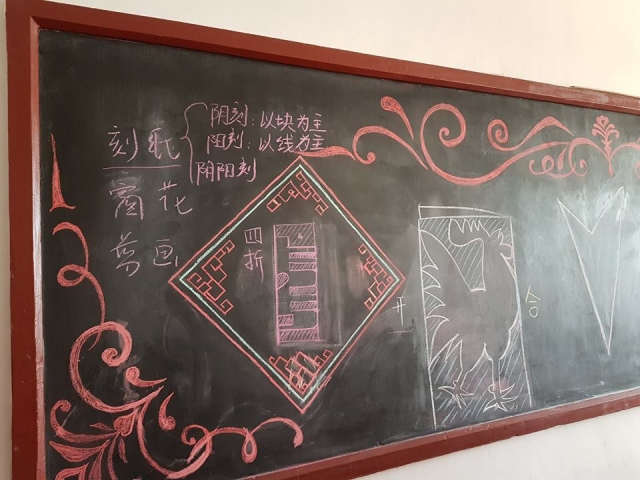 刻纸
阴刻：以块为主
阳刻：以线为主
阴阳刻
窗花
剪画
四折
开
合